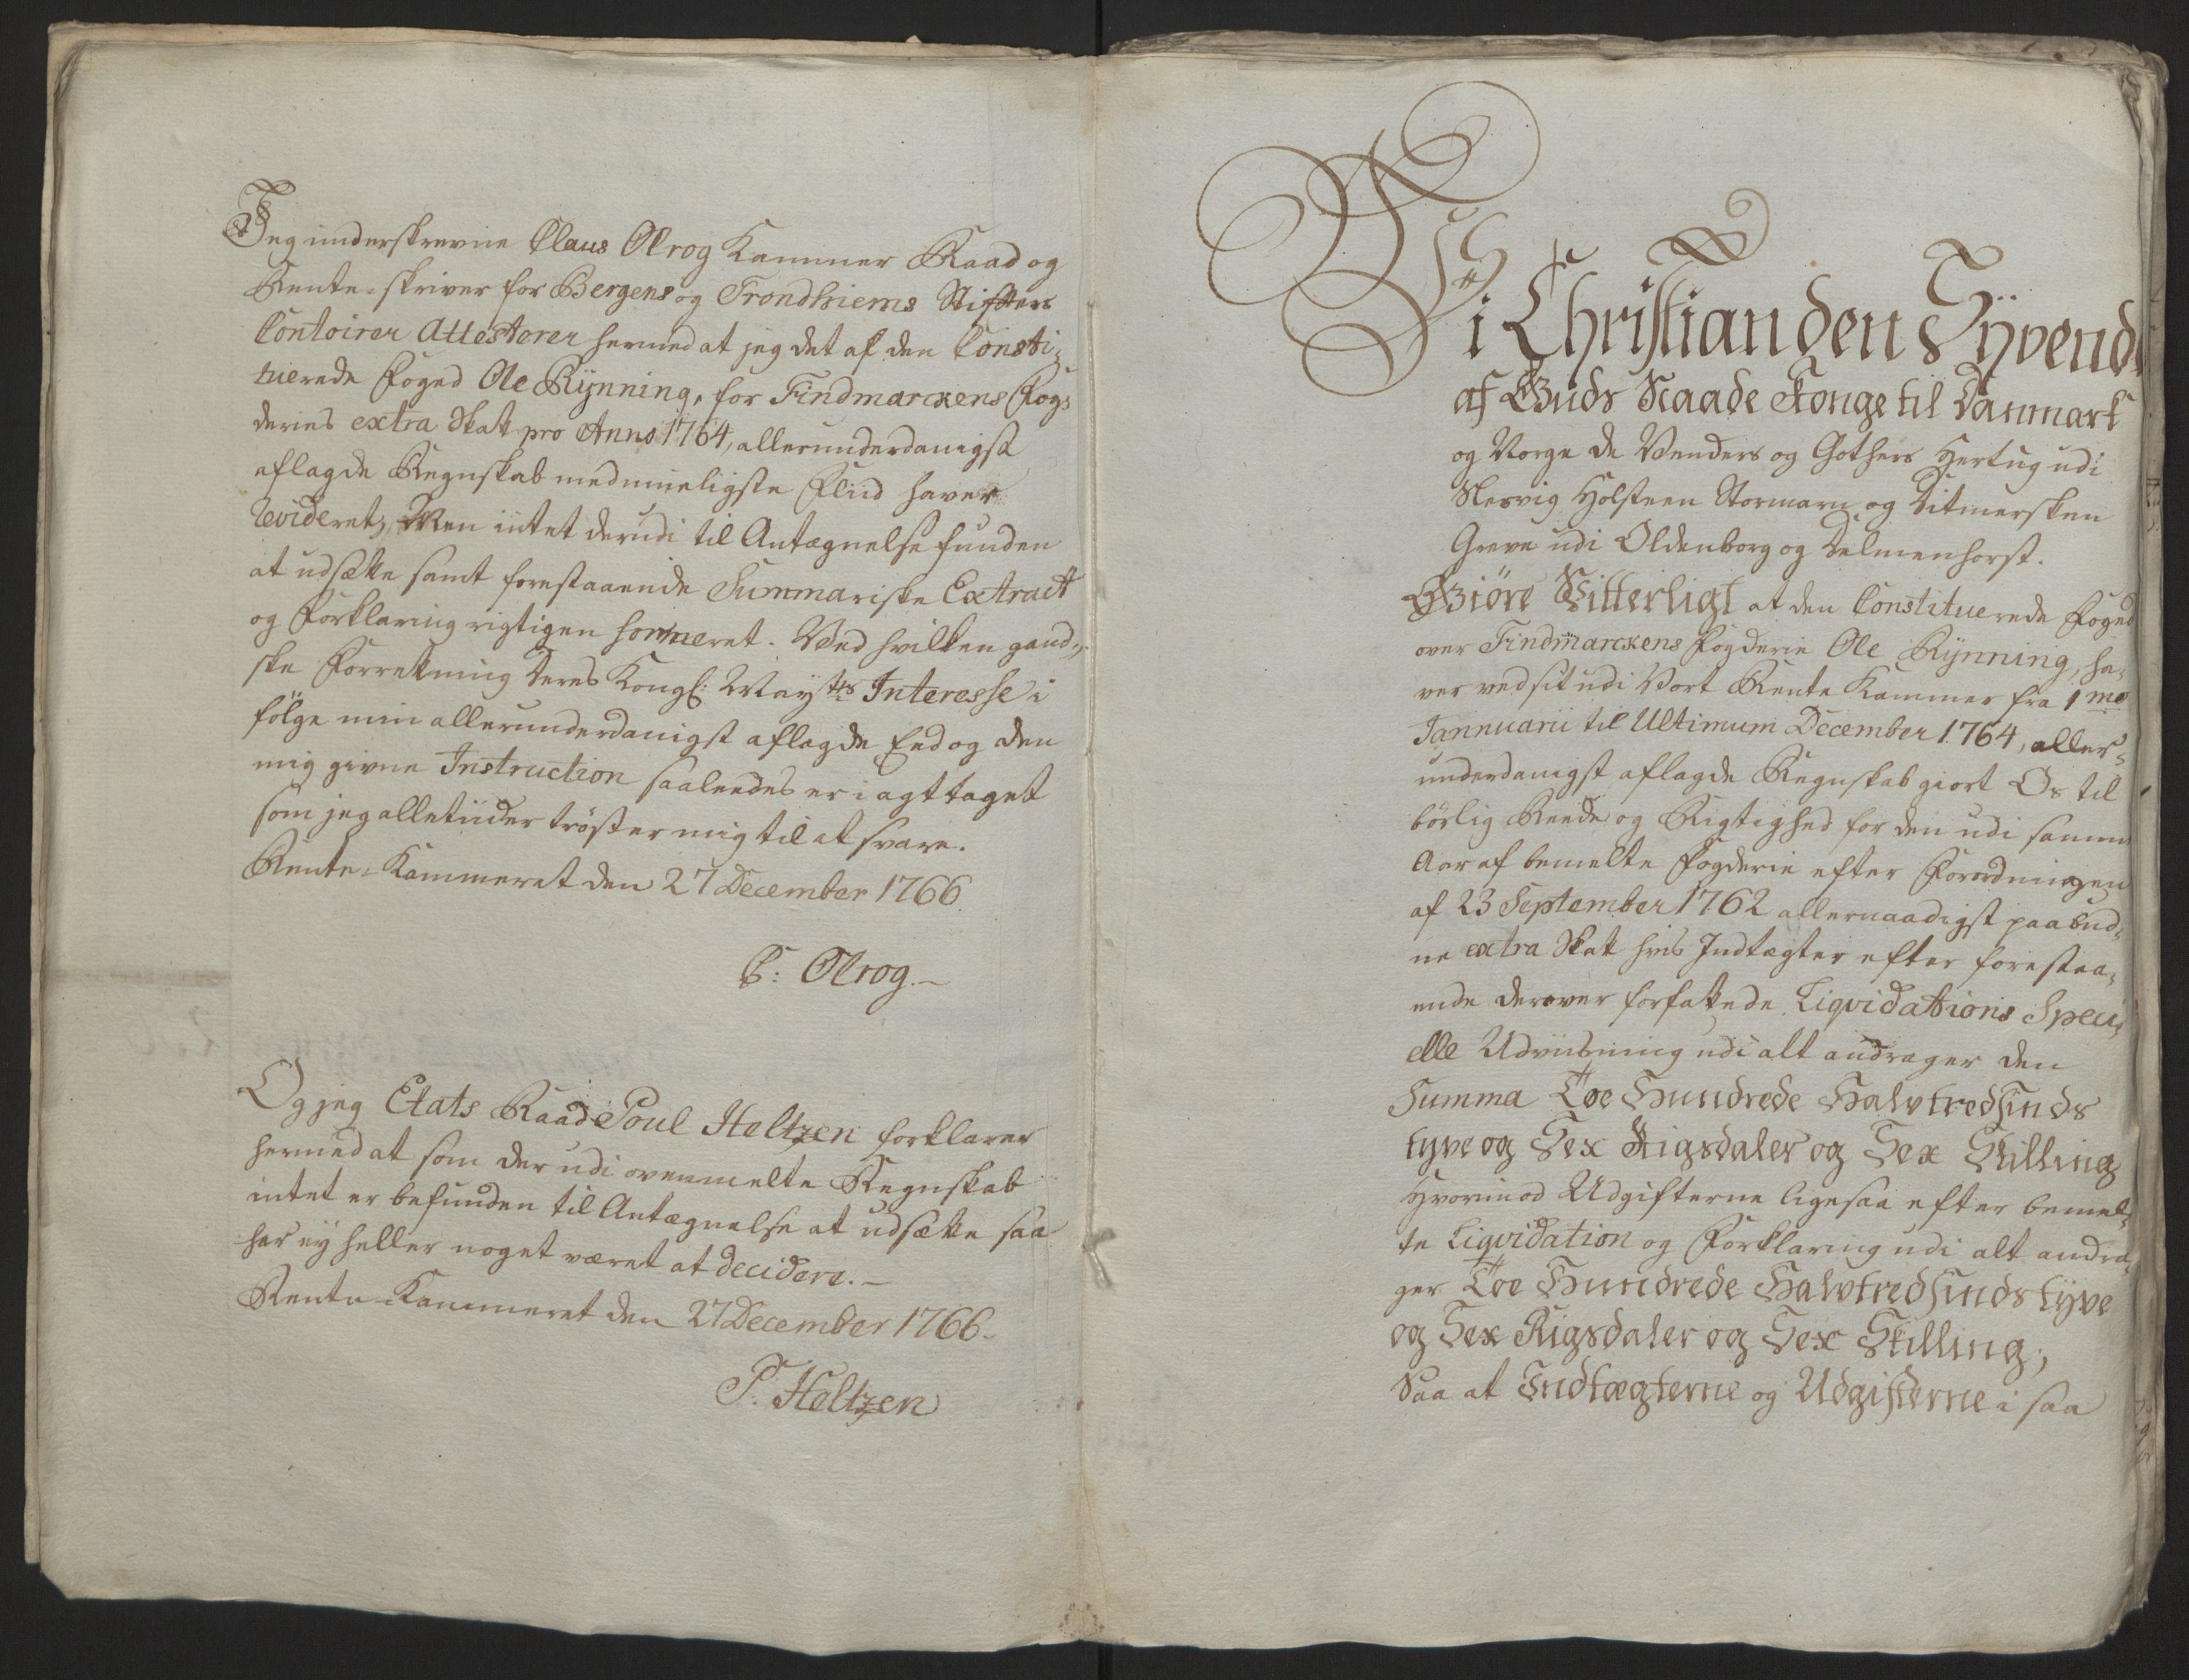 Jeg underskrevne Claus Olrog Kammer Raad og
Rente-skriver for Bergens og Trondhiems Stifters
Contoirer Attesterer hermed at jeg det af den Consti-
tuerede Foged Ole Rÿnning, for Findmarckens Fog-
deries extra Skatt pro Anno 1764, allerunderdanigst
aflagde Regnskab med mueligste Fliid haver
revideret, Men intet derudi til Antægnelse funden
at udsætte samt forestaaende Summariske Extract
og Forklaring rigtigen formeret. Ved hvilken gand-
ske Forretning Deres Kongl: Mayttes Interesse i
følge min allerunderdanigst aflagde Eed og den
mig givne Instruction saaleedes er i agt taget
som jeg alletiider trøster mig til at svare.
Rente-Kammeret den 27 December 1766
C: Olrog.
Og jeg Etats Raad Poul Heltzen forklarer
hermed at som der udi ovenmelte Regnskab
intet er befunden til Antægnelse at udsætte saa
har ey heller noget været at decidere.
Rente-Kammeret den 27 December 1766.
P. Heltzen
Vi Christian den Syvende
af Guds Naade Konge til Danmark
og Norge de Venders og Gothers Hertug udi
Slesvig Holsteen Stormarn og Ditmersken
Greve udi Oldenborg og Delmenhorst.
Giöre Vitterligt at den Constituerede Foged
over Findmarckens Fogderie Ole Rÿnning, ha-
ver ved sit udi Vort Rente Kammer fra 1mo
Jannuarii til Ultimum December 1764, aller-
underdanigst aflagde Regnskab giort Os til
börlig Reede og Rigtighed for den udi samme
Aar af bemelte Fogderie efter Forordningen
af 23 September 1762 allernaadigst paabud-
ne extra Skatt hvis Indtægter efter forestaa-
ende derover forfattede Liqvidations Speci-
elle Udviisning udi alt andrager den
Summa Toe Hundrede Halvtredsinds
tyve og Sex Rigsdaler og Sex Skilling
Hvorimod Udgifterne ligesaa efter bemel-
te Liqvidation og Forklaring udi alt andra-
ger Toe Hundrede Halvtredsinds tyve
og Sex Rigsdaler og Sex Skilling,
Saa at Indtægterne og Udgifterne i saa